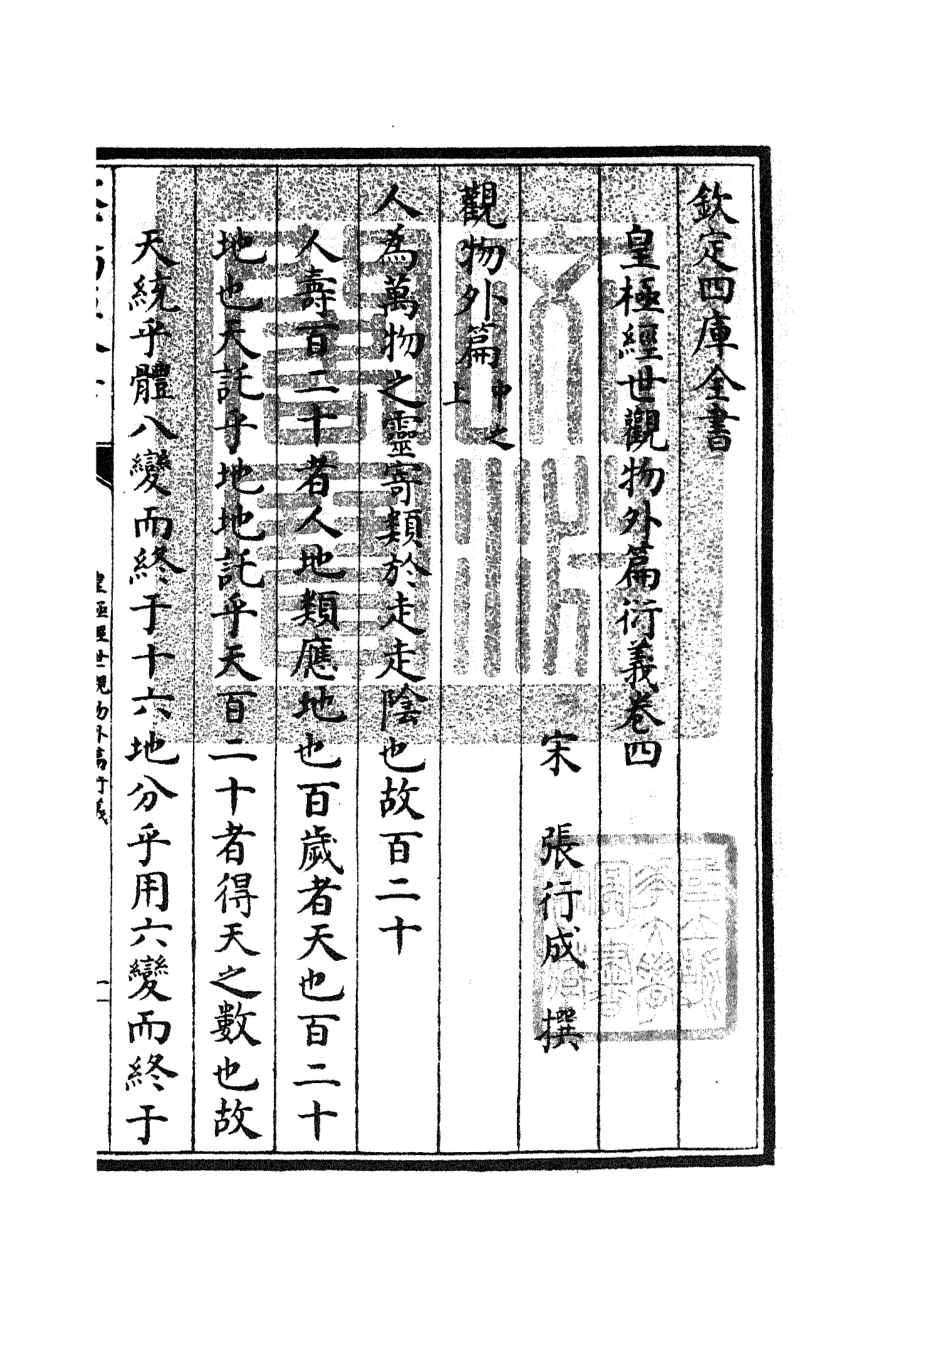 欽定四庫全書
皇極經世觀物外篇衍義卷四
宋 張行成 撰
觀物外篇中之上
人為萬物之靈寄類於走走陰也故百二十
人壽百二十者人地類應地也百歲者天也百二十
地也天託乎地地託乎天百二十者得天之數也故
天統乎體八變而終于十六地分乎用六變而終于
皇極經世觀物外篇衍義
一